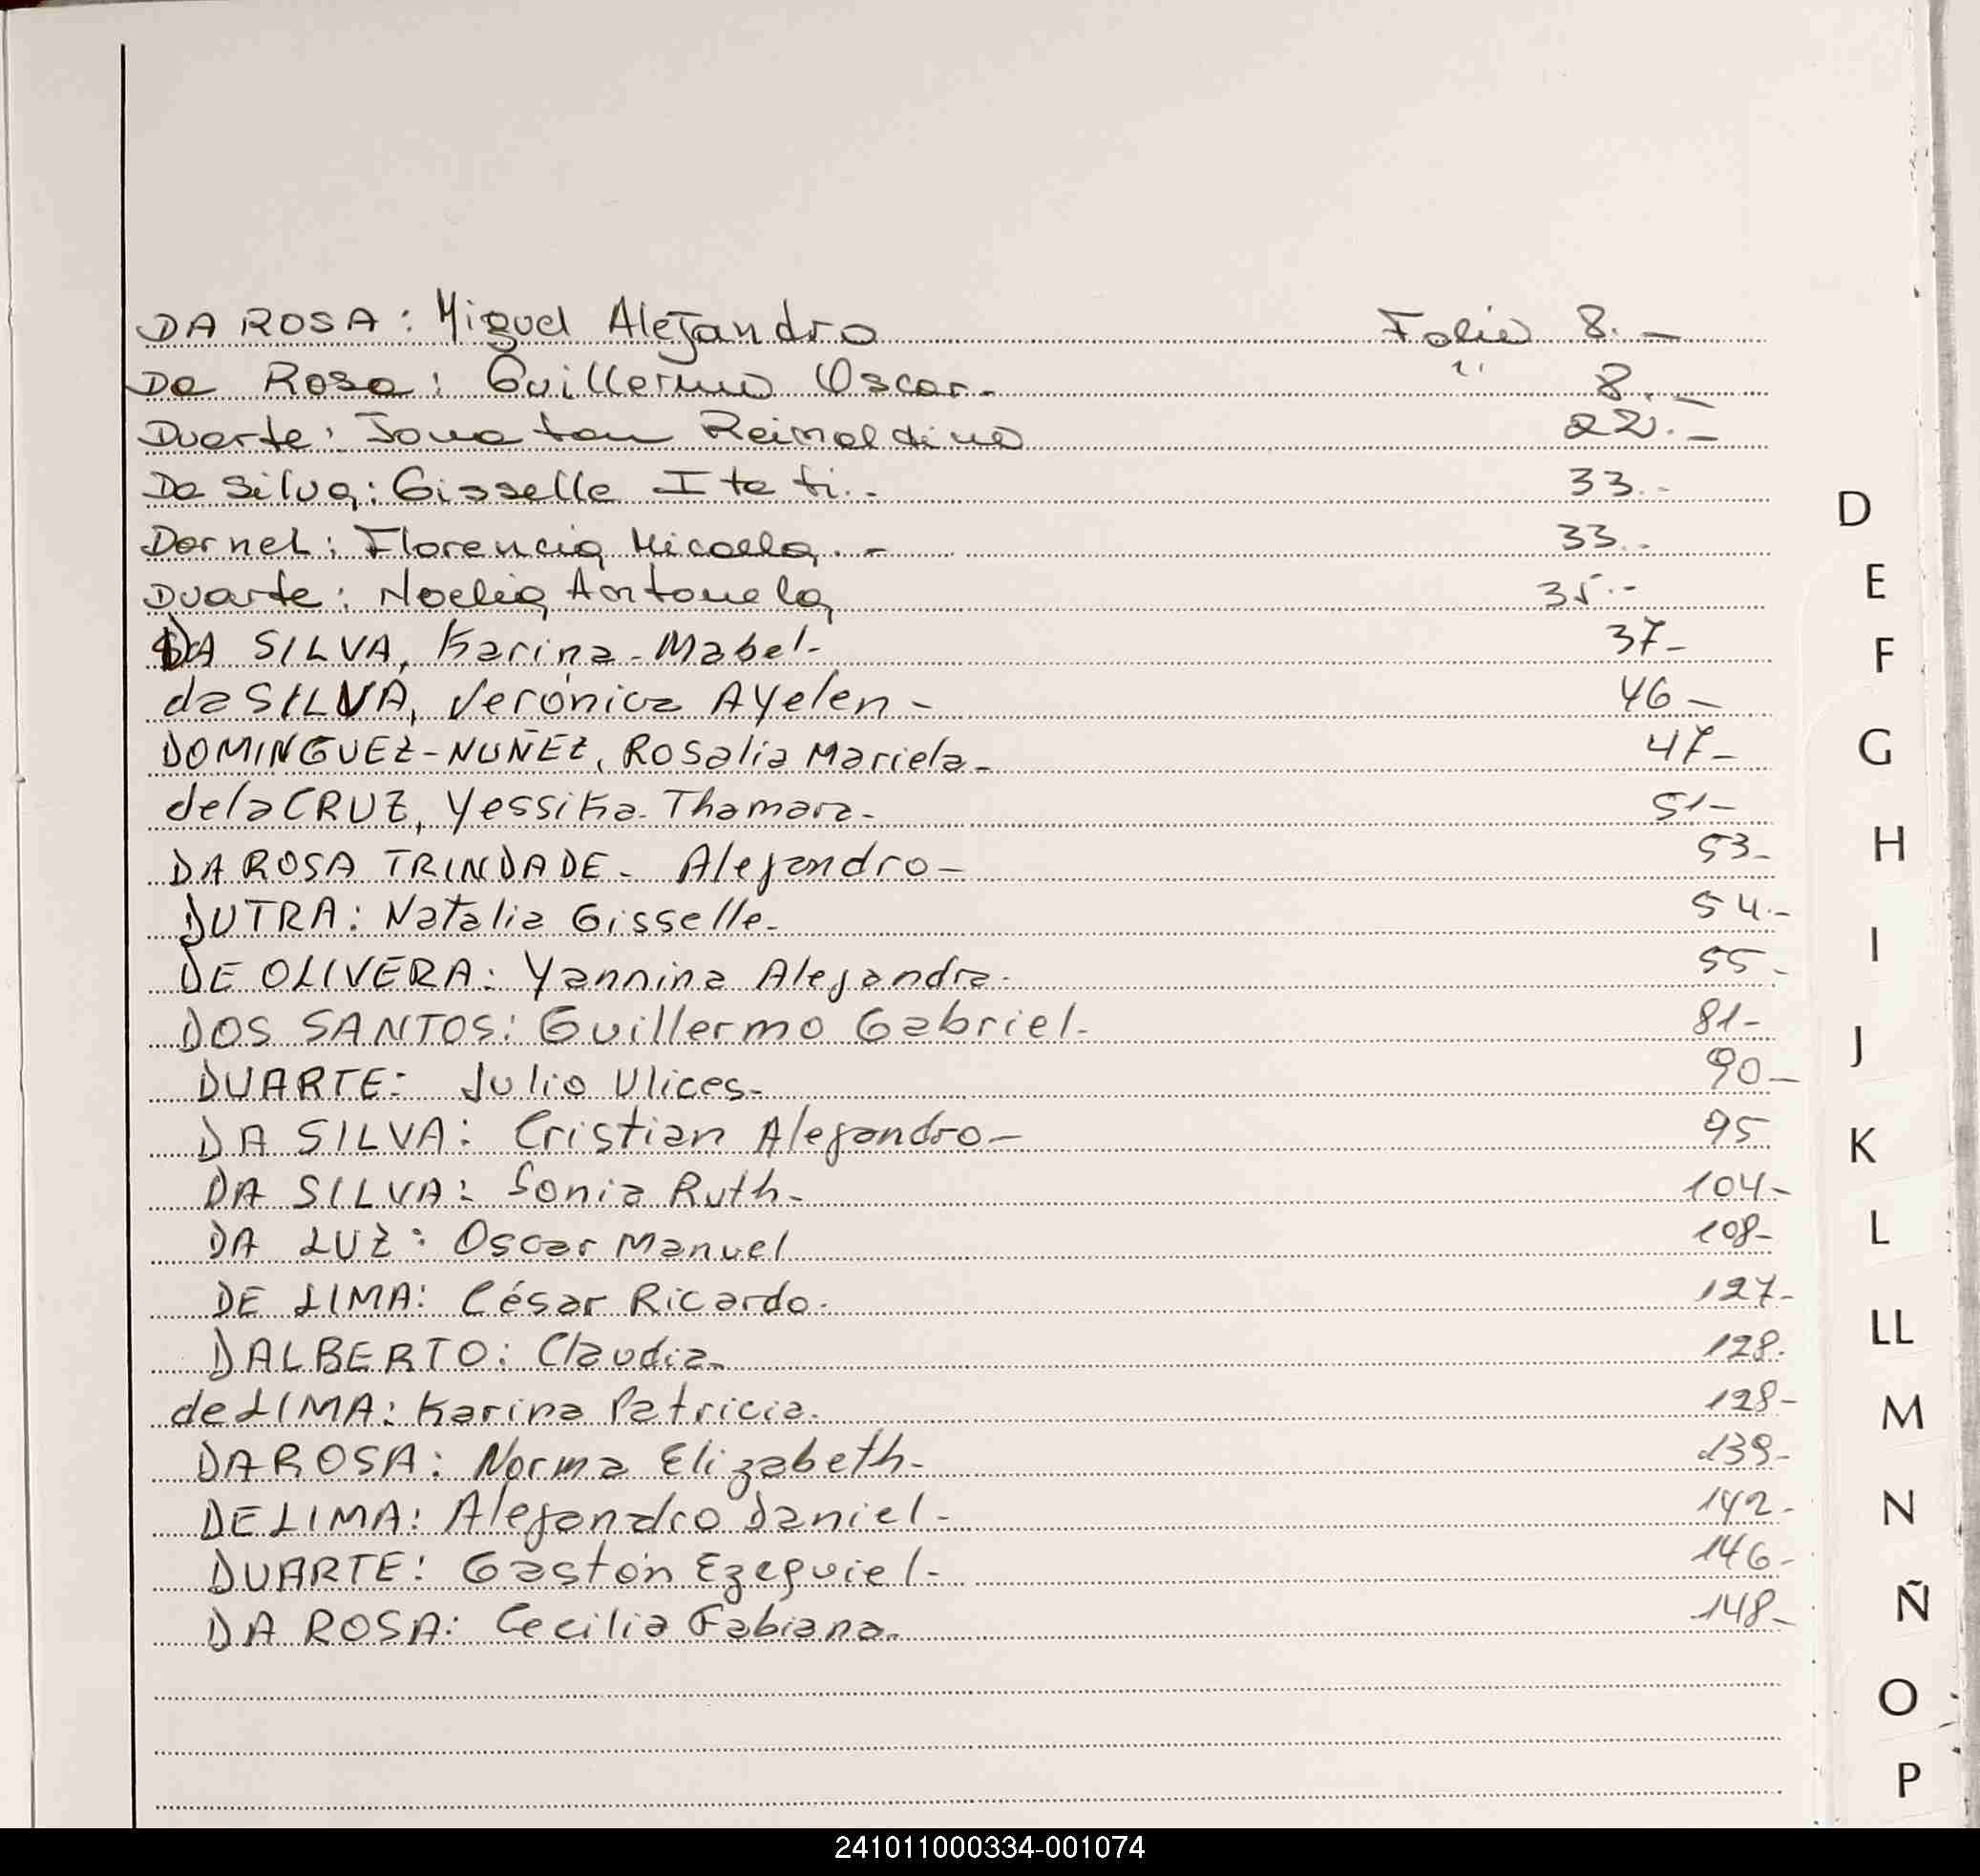 DA ROSA: Miguel Alejandro Folio 8.-
Da Rosa: Guillermo Oscar.- " 8.-
Duarte: Jonatan Reinaldino 22.-
Da Silva: Gisselle Itati.- 33.-
Dornel: Florencia Micaela.- 33.-
Duarte: Noelia Antonela 35.-
DA SILVA, Karina-Mabel- 37-
da SILVA, Verónica Ayelen- 46-
DOMINGUEZ-NUÑEZ, Rosalia Mariela- 47-
de la CRUZ, Yessika-Thamara- 51-
DA ROSA TRINDADE- Alejandro- 53-
DUTRA: Natalia Gisselle- 54.-
DE OLIVERA: Yannina Alejandra- 55-
DOS SANTOS: Guillermo Gabriel- 81-
DUARTE: Julio Ulices- 90-
DA SILVA: Cristian Alejandro- 95
DA SILVA: Sonia Ruth- 104-
DA LUZ: Oscar Manuel 108-
DE LIMA: César Ricardo- 127-
DALBERTO: Claudia- 128.
de LIMA: Karina Patricia- 128-
DA ROSA: Norma Elizabeth- 139-
DE LIMA: Alejandro Daniel- 142-
DUARTE: Gastón Ezequiel- 146-
DA ROSA: Cecilia Fabiana- 148-
D
E
F
G
H
I
J
K
L
LL
M
N
Ñ
O
P
241011000334-001074